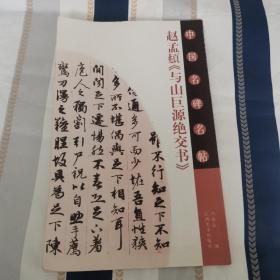 中国名碑名帖
赵孟頫《与山巨源绝交书》
雖不行知足下不知
傍通多可而少恠吾直性狹
多所不堪偶與足下相知耳
間聞足下遷惕然不喜恐足下羞
庖人之獨割引尸祝以自助手薦
鸞刀漫之羶腥故具為足下陳